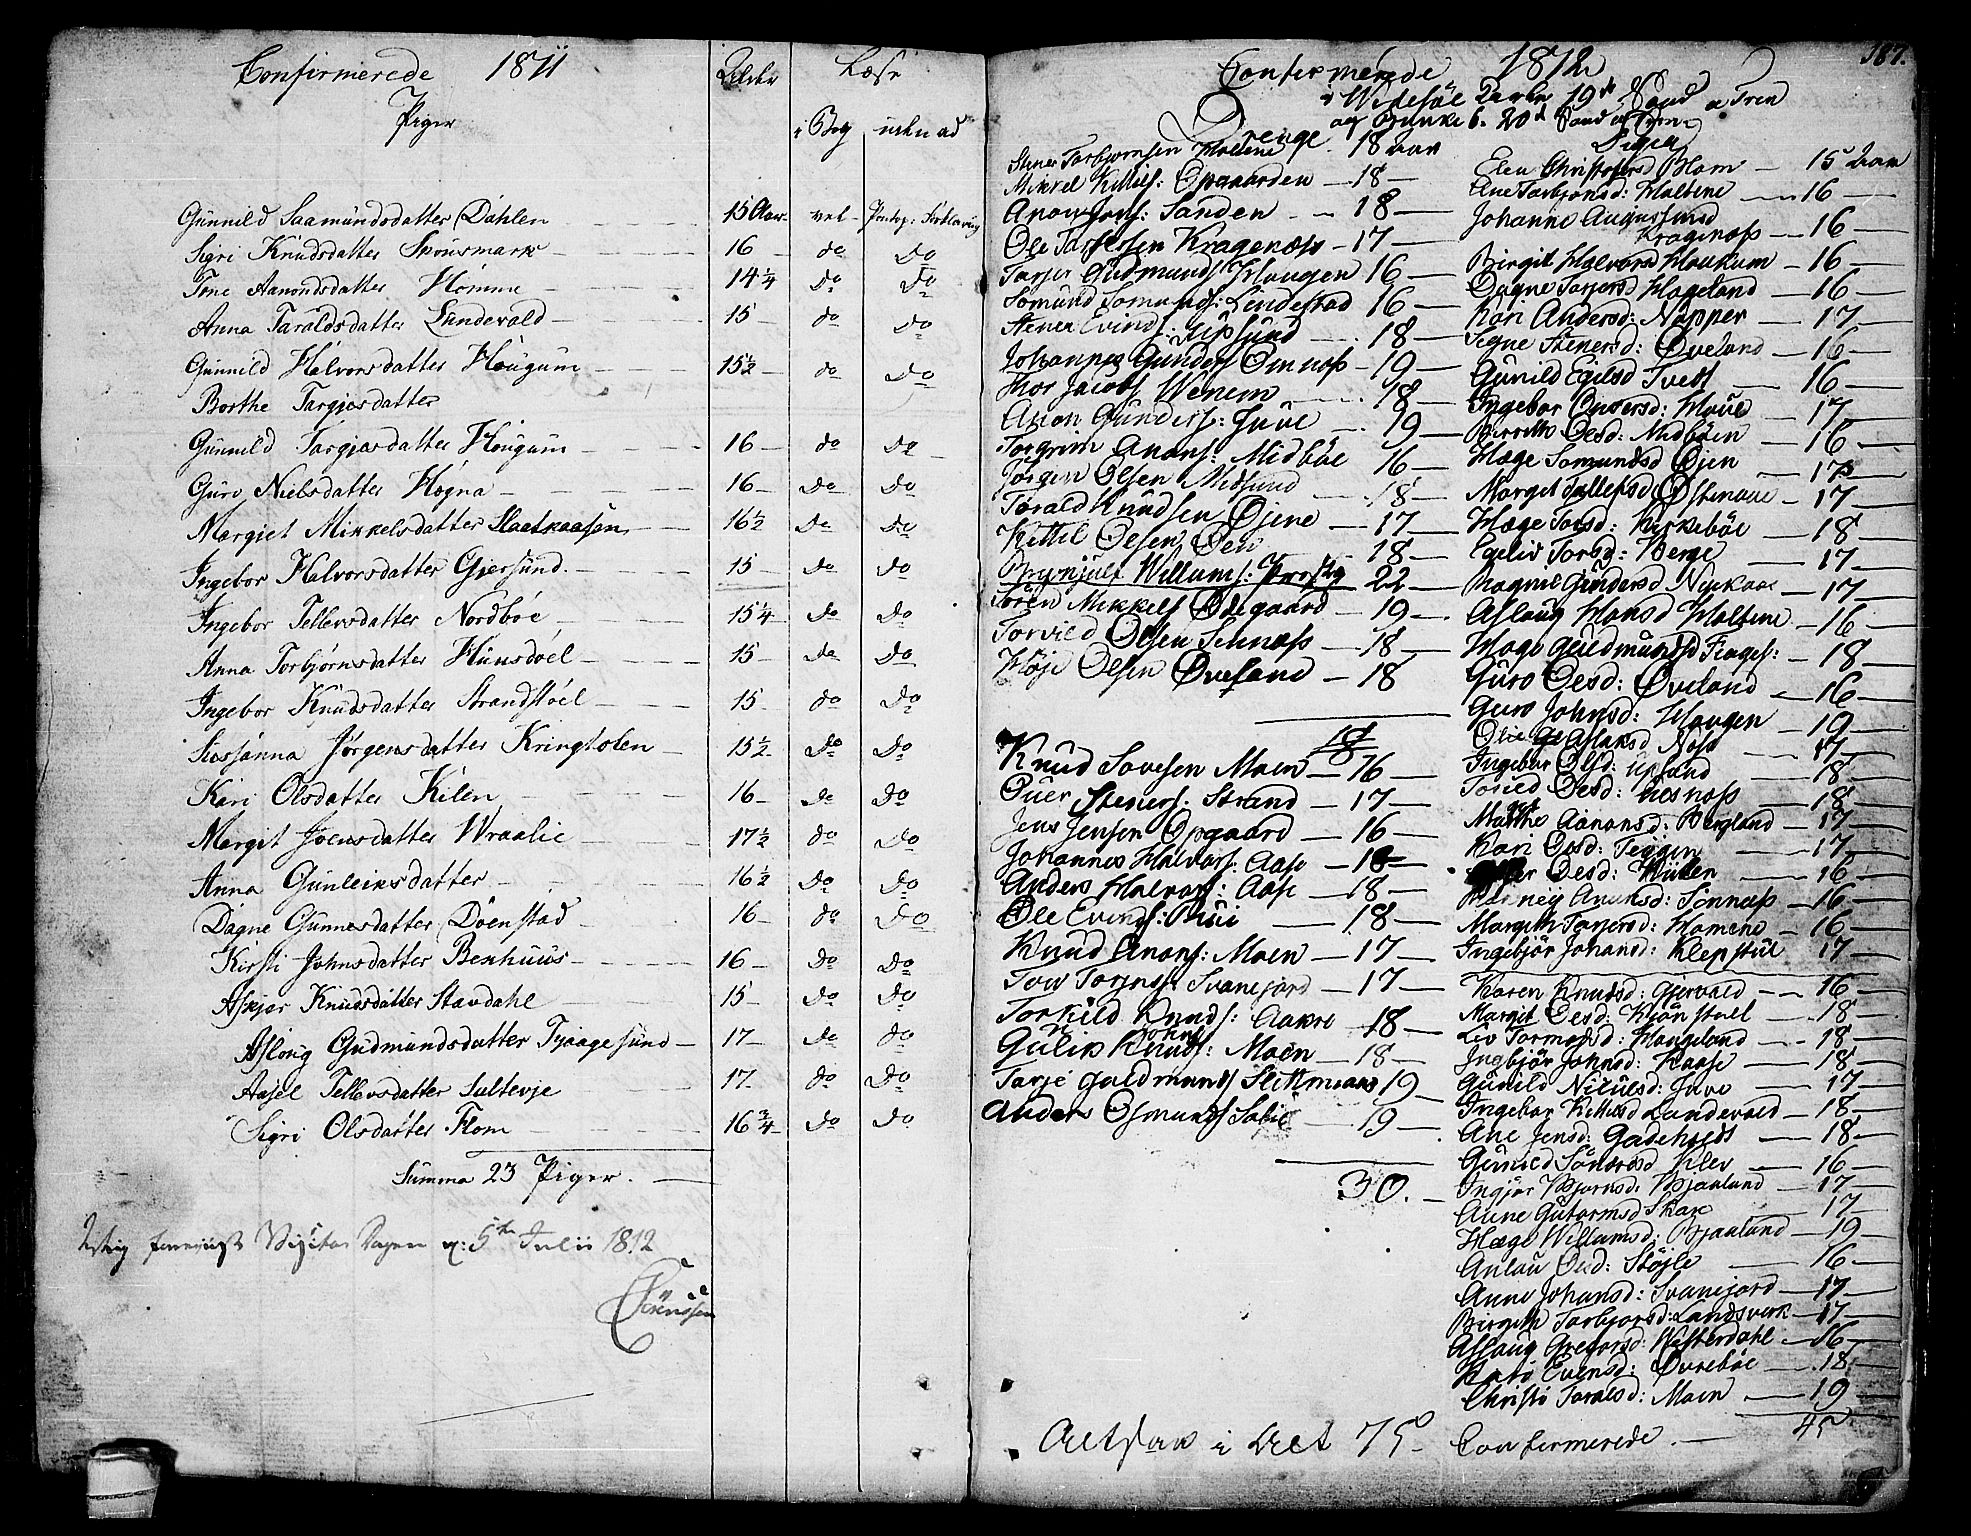 Confirmerede 1811
Piger
Alder
Læse
i Bog
uden ad
Gunnild Saamundsdatter Dahlen 15 Aar vel
Sigri Knudsdatter Skousmark 16 do do
Tone Aanondsdatter Homme 14 1/4 do do
Anna Taraldsdatter Lundevald 15 do do
Gunnild Halvorsdatter Hougum 15 1/2 do do
Borthe Targjosdatter
Gunnild Targjosdatter Hougum 16 do do
Guro Nielsdatter Høgna 16 do do
Margjet Mikkelsdatter Slaatkaasen 16 1/2 do do
Ingebor Halvorsdatter Gjersund 15 do do
Ingebor Tellevsdatter Nordbøe 15 1/4 do do
Anna Torbjørnsdatter Hunsdøel 15 do do
Ingebor Knudsdatter Strandstøel 15 do do
Sussanna Jørgensdatter Kringlolen 15 1/2 do do
Kari Olsdatter Kilen 16 do do
Margit Joensdatter Wraalie 17 1/2 do do
Anna Gunleiksdatter 16 1/2 do do
Dagne Gunnesdatter Doenstad 16 do do
Kirsti Johnsdatter Benhuus 16 do do
Askjer Knudsdatter Stavdahl 15 do do
Asloug Gudmundsdatter Tjaagesund 17 do do
Aasel Tellevsdatter Sultevje 17 do do
Sigri Olsdatter Flom 16 3/4 do do
Summa 23 Piger.
5te Julii 1812
187.
Confermerede 1812
Drenge
Stener Torbjørnsen Moltene 18 aar
Mikkel Kittils: Opgaarden 18
Anon Jons: Sanden 18
Ole Tarjesen Kragenæs 17
Tarjer Gudmunds Haugen 16
Somund Somunds: Lindestad 16
Stener Evinds: Upsund 18
Johannes Gunders Omnæs 19
Thor Jacobs Wenem 18
Anon Gunders: Juve 19
Torgrim Anons: Midbøe 16
Jørgen Olsen Midsund 18
Torald Knudsen Øjene 17
Kittil Oelsen Øen 18
Brynjulf Willums: 22
Søren Mikkels Ødegaard 19
Torvild Olsen Sennæs 18
Høje Olsen Øveland 18
18
Knud Sovesen Moen 16
Ouer Steners. Strand 17
Jens Jensen Opgaard 16
Johannes Halvors: Aase 18
Anders Halvors: Aase 18
Ole Evinds: 18
Knud Anons: Moen 17
Tov Torjens: Svanejord 17
Torkild Knuds: Aakre 18
John
Gulik Knuds: Moen 18
Tarje Guldmunds Slettmoen 19
Anders Osmunds 19
30.
Piger
Elen Christofersd Blom 15 Aar
Ane Tarbjønsd: Moltene 16
Johanne Augustinusd
Kragenæs 16
Birgit Halvorsd Haukum 16
Dagne Tarjersd Hageland 16
Kari Andersd: Napper 17
Segne Stenersd: Øveland 16
Gunild Egilsd Tvedt 16
Ingebor Onsersd: Haue 17
Berritte Oelsd: Midbøen 16
Hæge Somundsd Øjen 17
Margit Tellefsd Østenaue 17
Hæge Torsd: Kirkebøe 18
Egeliv Torbj: Berge 17
Ragnel Gundersd Nyekaas 17
Aslaug Hansd Moltene 16
Hæge Guldmundsd 18
Guro Oelsd: Øveland 16
Guro Johnsd: Haugen 19
Olie Aslaksd Næs 17
Ingebor Olsd: Upsund 18
Torild Oelsd: 18
Aanonsd: Bergland 17
Kari Oelsd: Teigen 17
Oelsd: Kiilen 16
Anundsd: Sonnæs 16
Margith Tarjersd: Homene 16
Ingebjør Johansd: Klepstul 17
Karen Knudsd: Gjervald 16
Margit Oelsd: 18
Liv Tormosd: Haugeland 18
Ingebjør Johnsd: Kaase 18
Gunild Niculsd: Juve 17
Ingebor Kittilsd Lundevald 18
Ane Jensd: 18
Gunild Sondresd Klev 16
Ingjør Bjørnsd: Bjaaland 17
Anne Gutormsd Skare 17
Hæge Willumsd: Bjaaland 19
Anlau Oelsd: Støjle 16
Anne Johansd: Svanejord 17
Birgith Torbjorsd: Landsverk 17
Aslaug Gregorsd: Westerdahl 16
Evensd: Øvrebøe 18
Christi Toralsd: Moen 19
45
Altsaa i Alt 75 Confermerede.